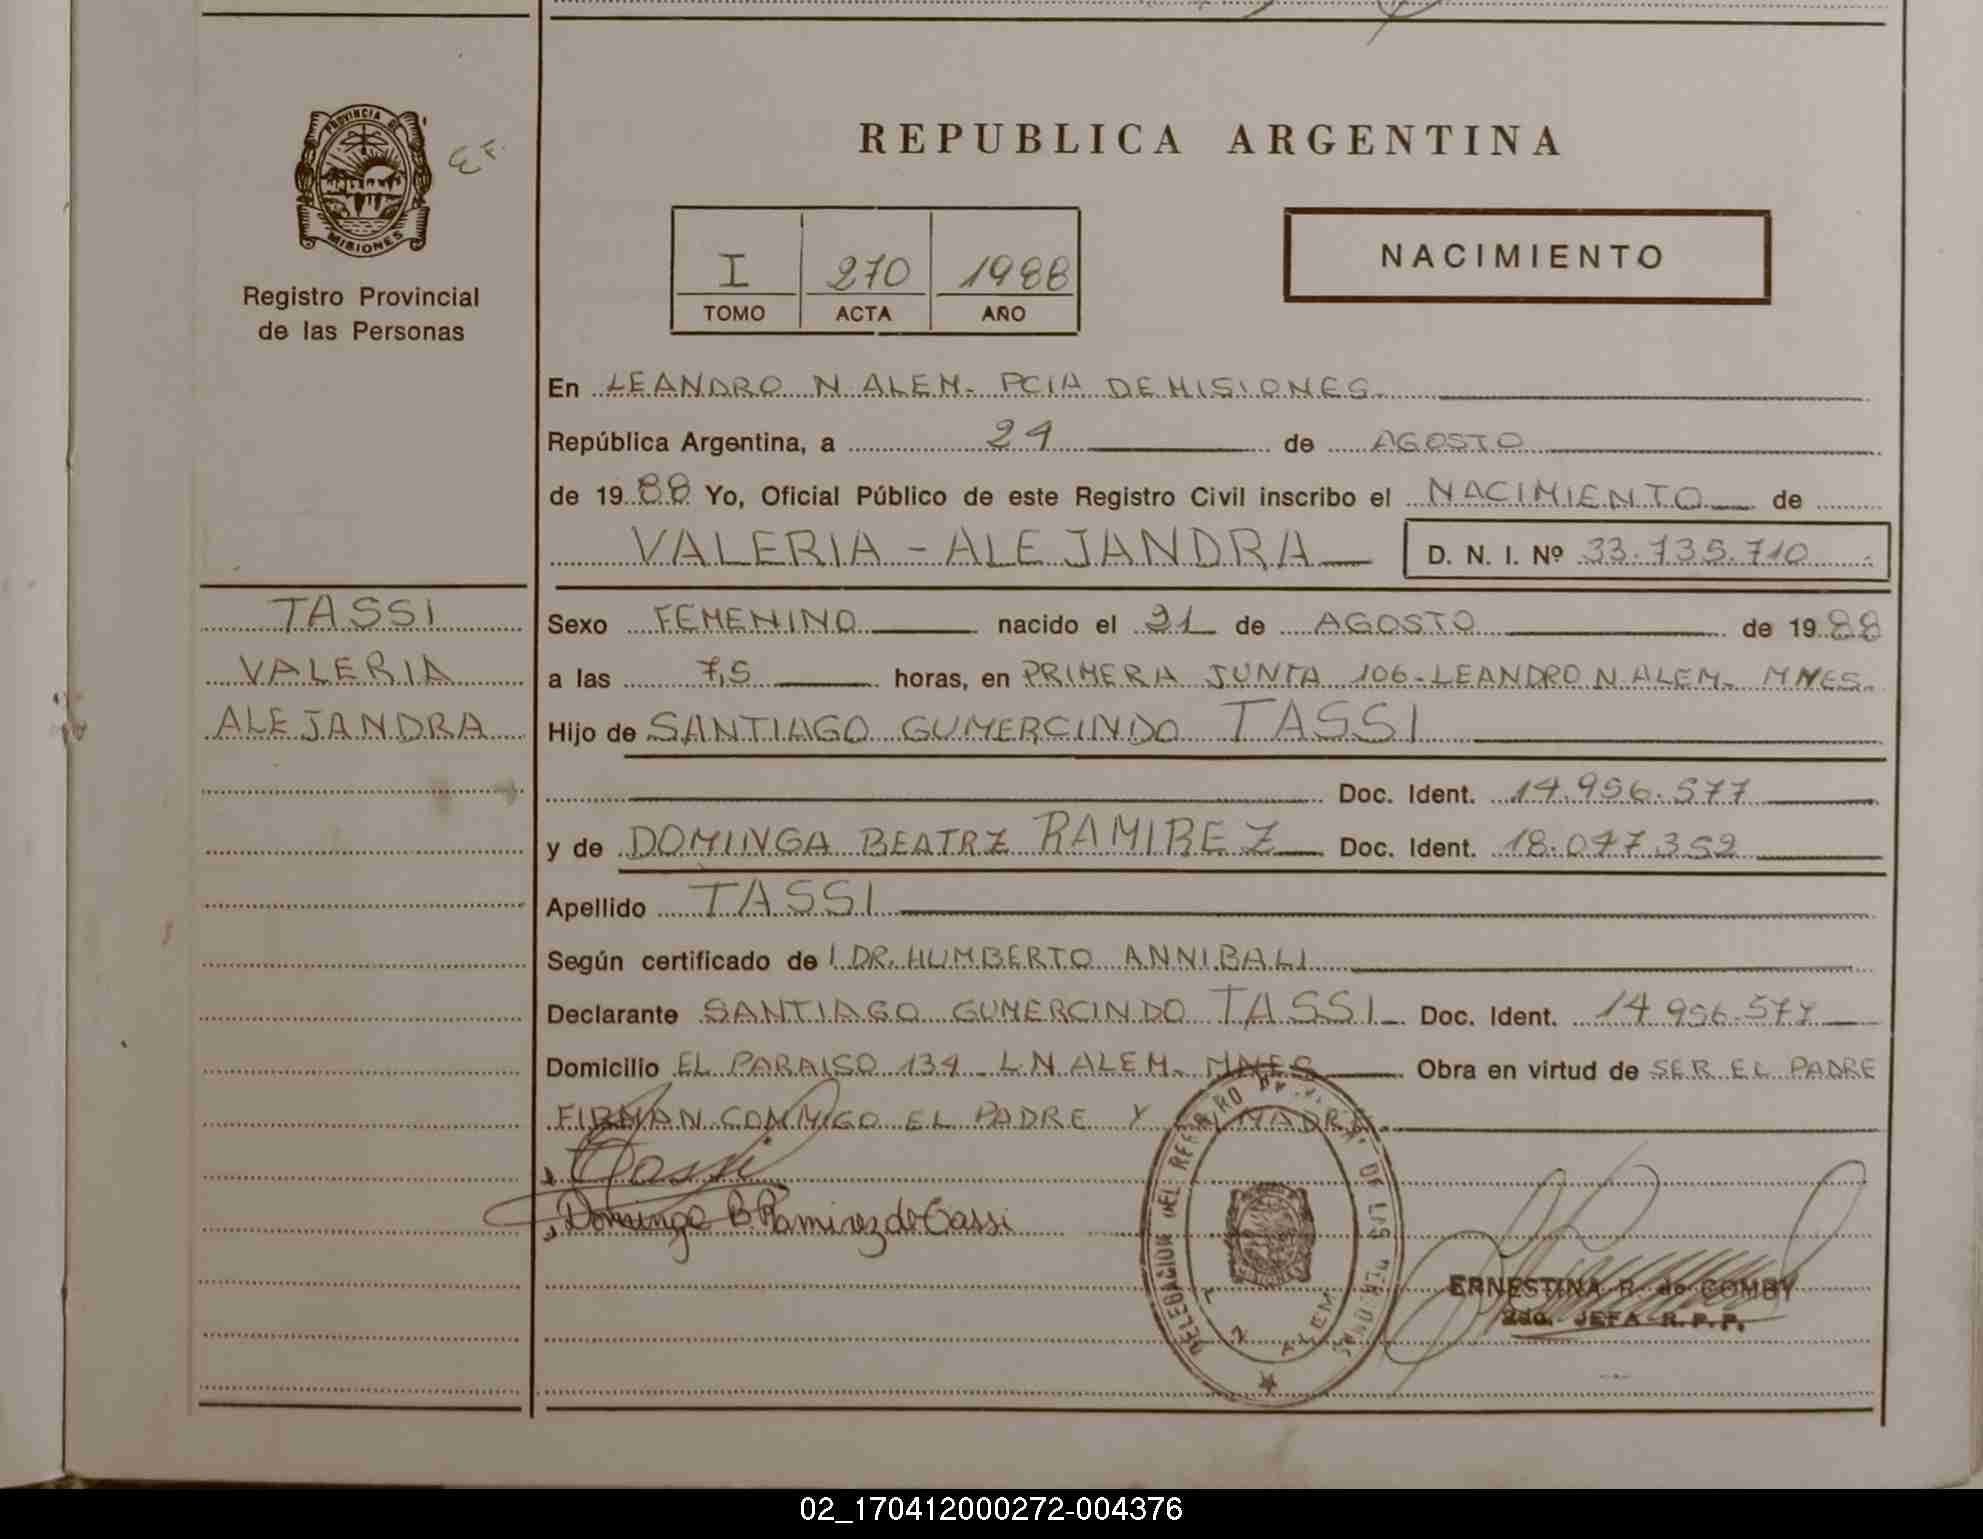 PROVINCIA DE
MISIONES
Registro Provincial
de las Personas
REPUBLICA ARGENTINA
I 270 1988
TOMO ACTA AÑO
NACIMIENTO
En LEANDRO N. ALEM. PCIA DE MISIONES
República Argentina, a 24 de AGOSTO
de 1988 Yo, Oficial Público de este Registro Civil inscribo el NACIMIENTO de
VALERIA - ALEJANDRA D. N. I. Nº 33.735.710
TASSI
VALERIA
ALEJANDRA
Sexo FEMENINO nacido el 21 de AGOSTO de 1988
a las 7,5 horas, en PRIMERA JUNTA 106 - LEANDRO N. ALEM. MNES.
Hijo de SANTIAGO GUMERCINDO TASSI
Doc. Ident. 14.956.577
y de DOMINGA BEATRZ RAMIREZ Doc. Ident. 18.077.352
Apellido TASSI
Según certificado de l DR. HUMBERTO ANNIBALI
Declarante SANTIAGO GUMERCINDO TASSI Doc. Ident. 14.956.577
Domicilio EL PARAISO 134 L.N ALEM. MNES Obra en virtud de SER EL PADRE
FIRMAN CONMIGO EL PADRE Y MADRE.
Tassi
Dominga B. Ramirez de Tassi
DELEGACION DEL REGISTRO DE LAS PERSONAS
L N ALEM
ERNESTINA R. de COMBY
2da. JEFA R.P.P.
02_170412000272-004376